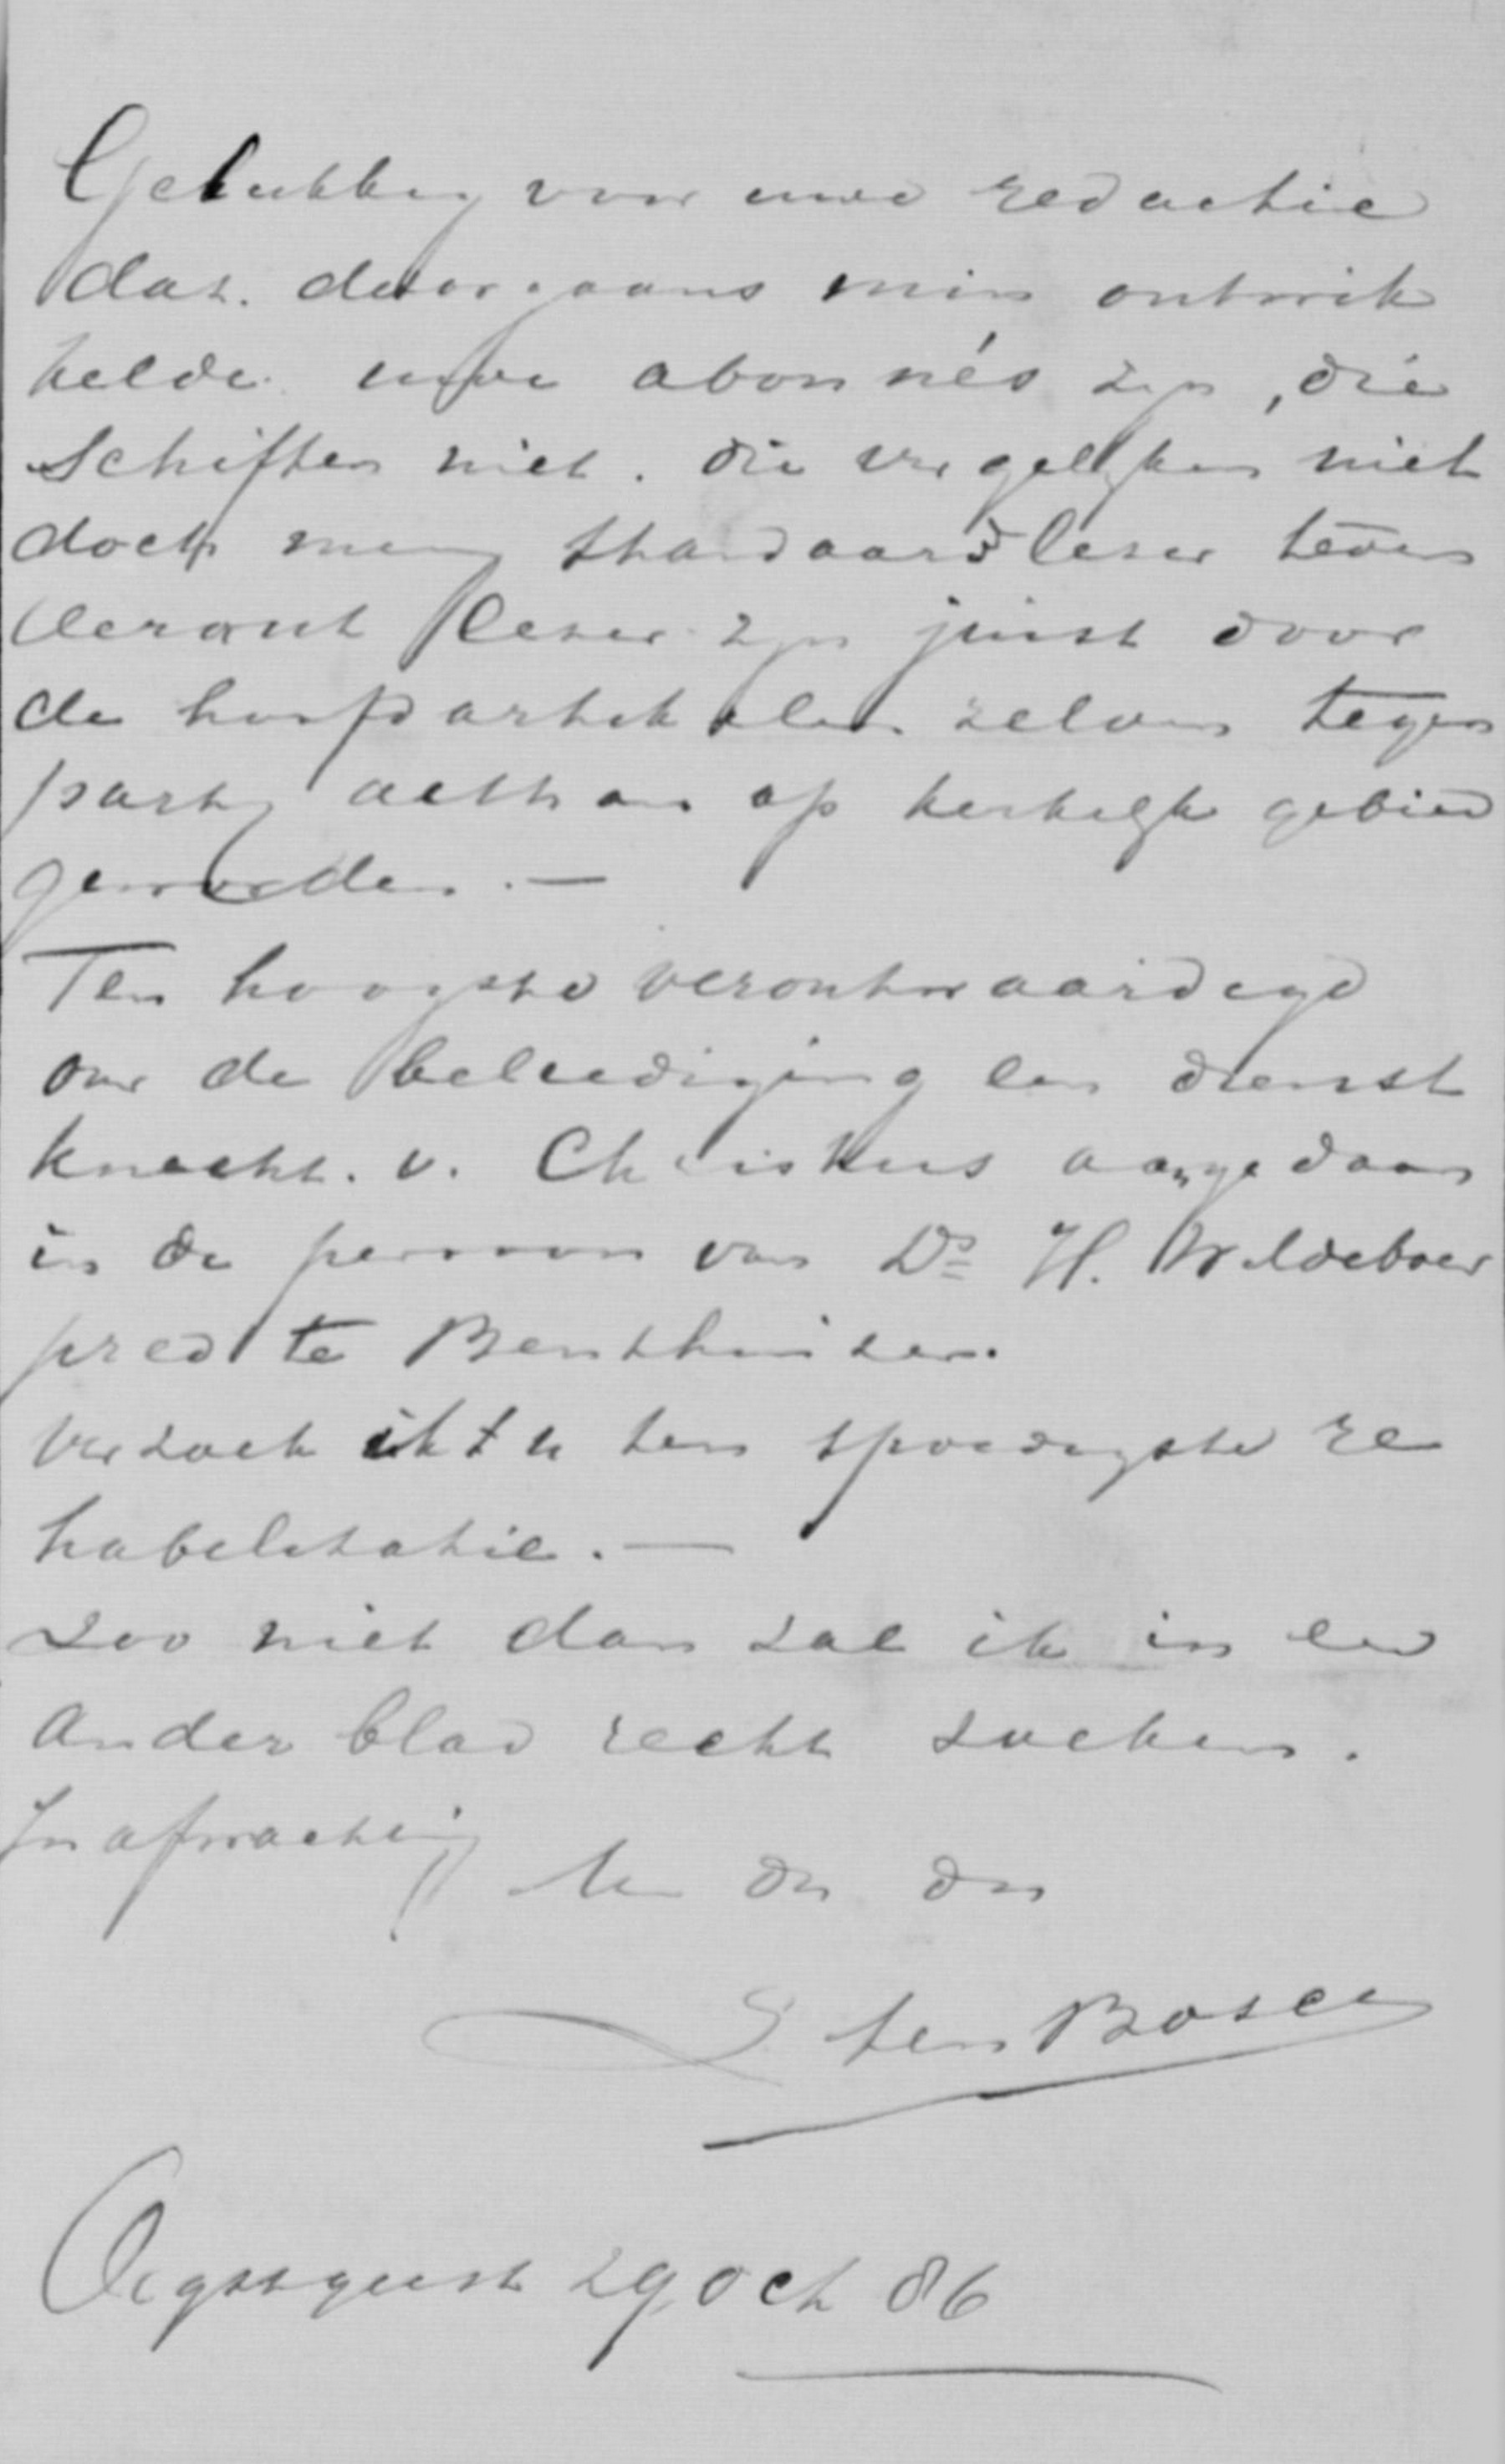 Gelukkig voor uwe redactie
dat doorgaans min ontwik
kelde uwe abonnés zyn, die
schiften niet. die vergelyken niet
doch menig standaard lezer tevens
Heraut lezer zyn juist door
de hoofdartikelen zelven tegen
party althans op kerkelyk gebied
geworden. —
Ten hoogste verontwaardigd
over de beleediging een dienst
knecht. v. Christus aangedaan
in de persoon van Ds H. Wildeboer
pred te Benthuizen.
verzoek ik u ten spoedigste re
habilitatie. —
zoo niet dan zal ik in een
ander blad recht zoeken.
In afwachting
Uw dw dn
ten Bosch
Oegstgeest 29 Oct 86